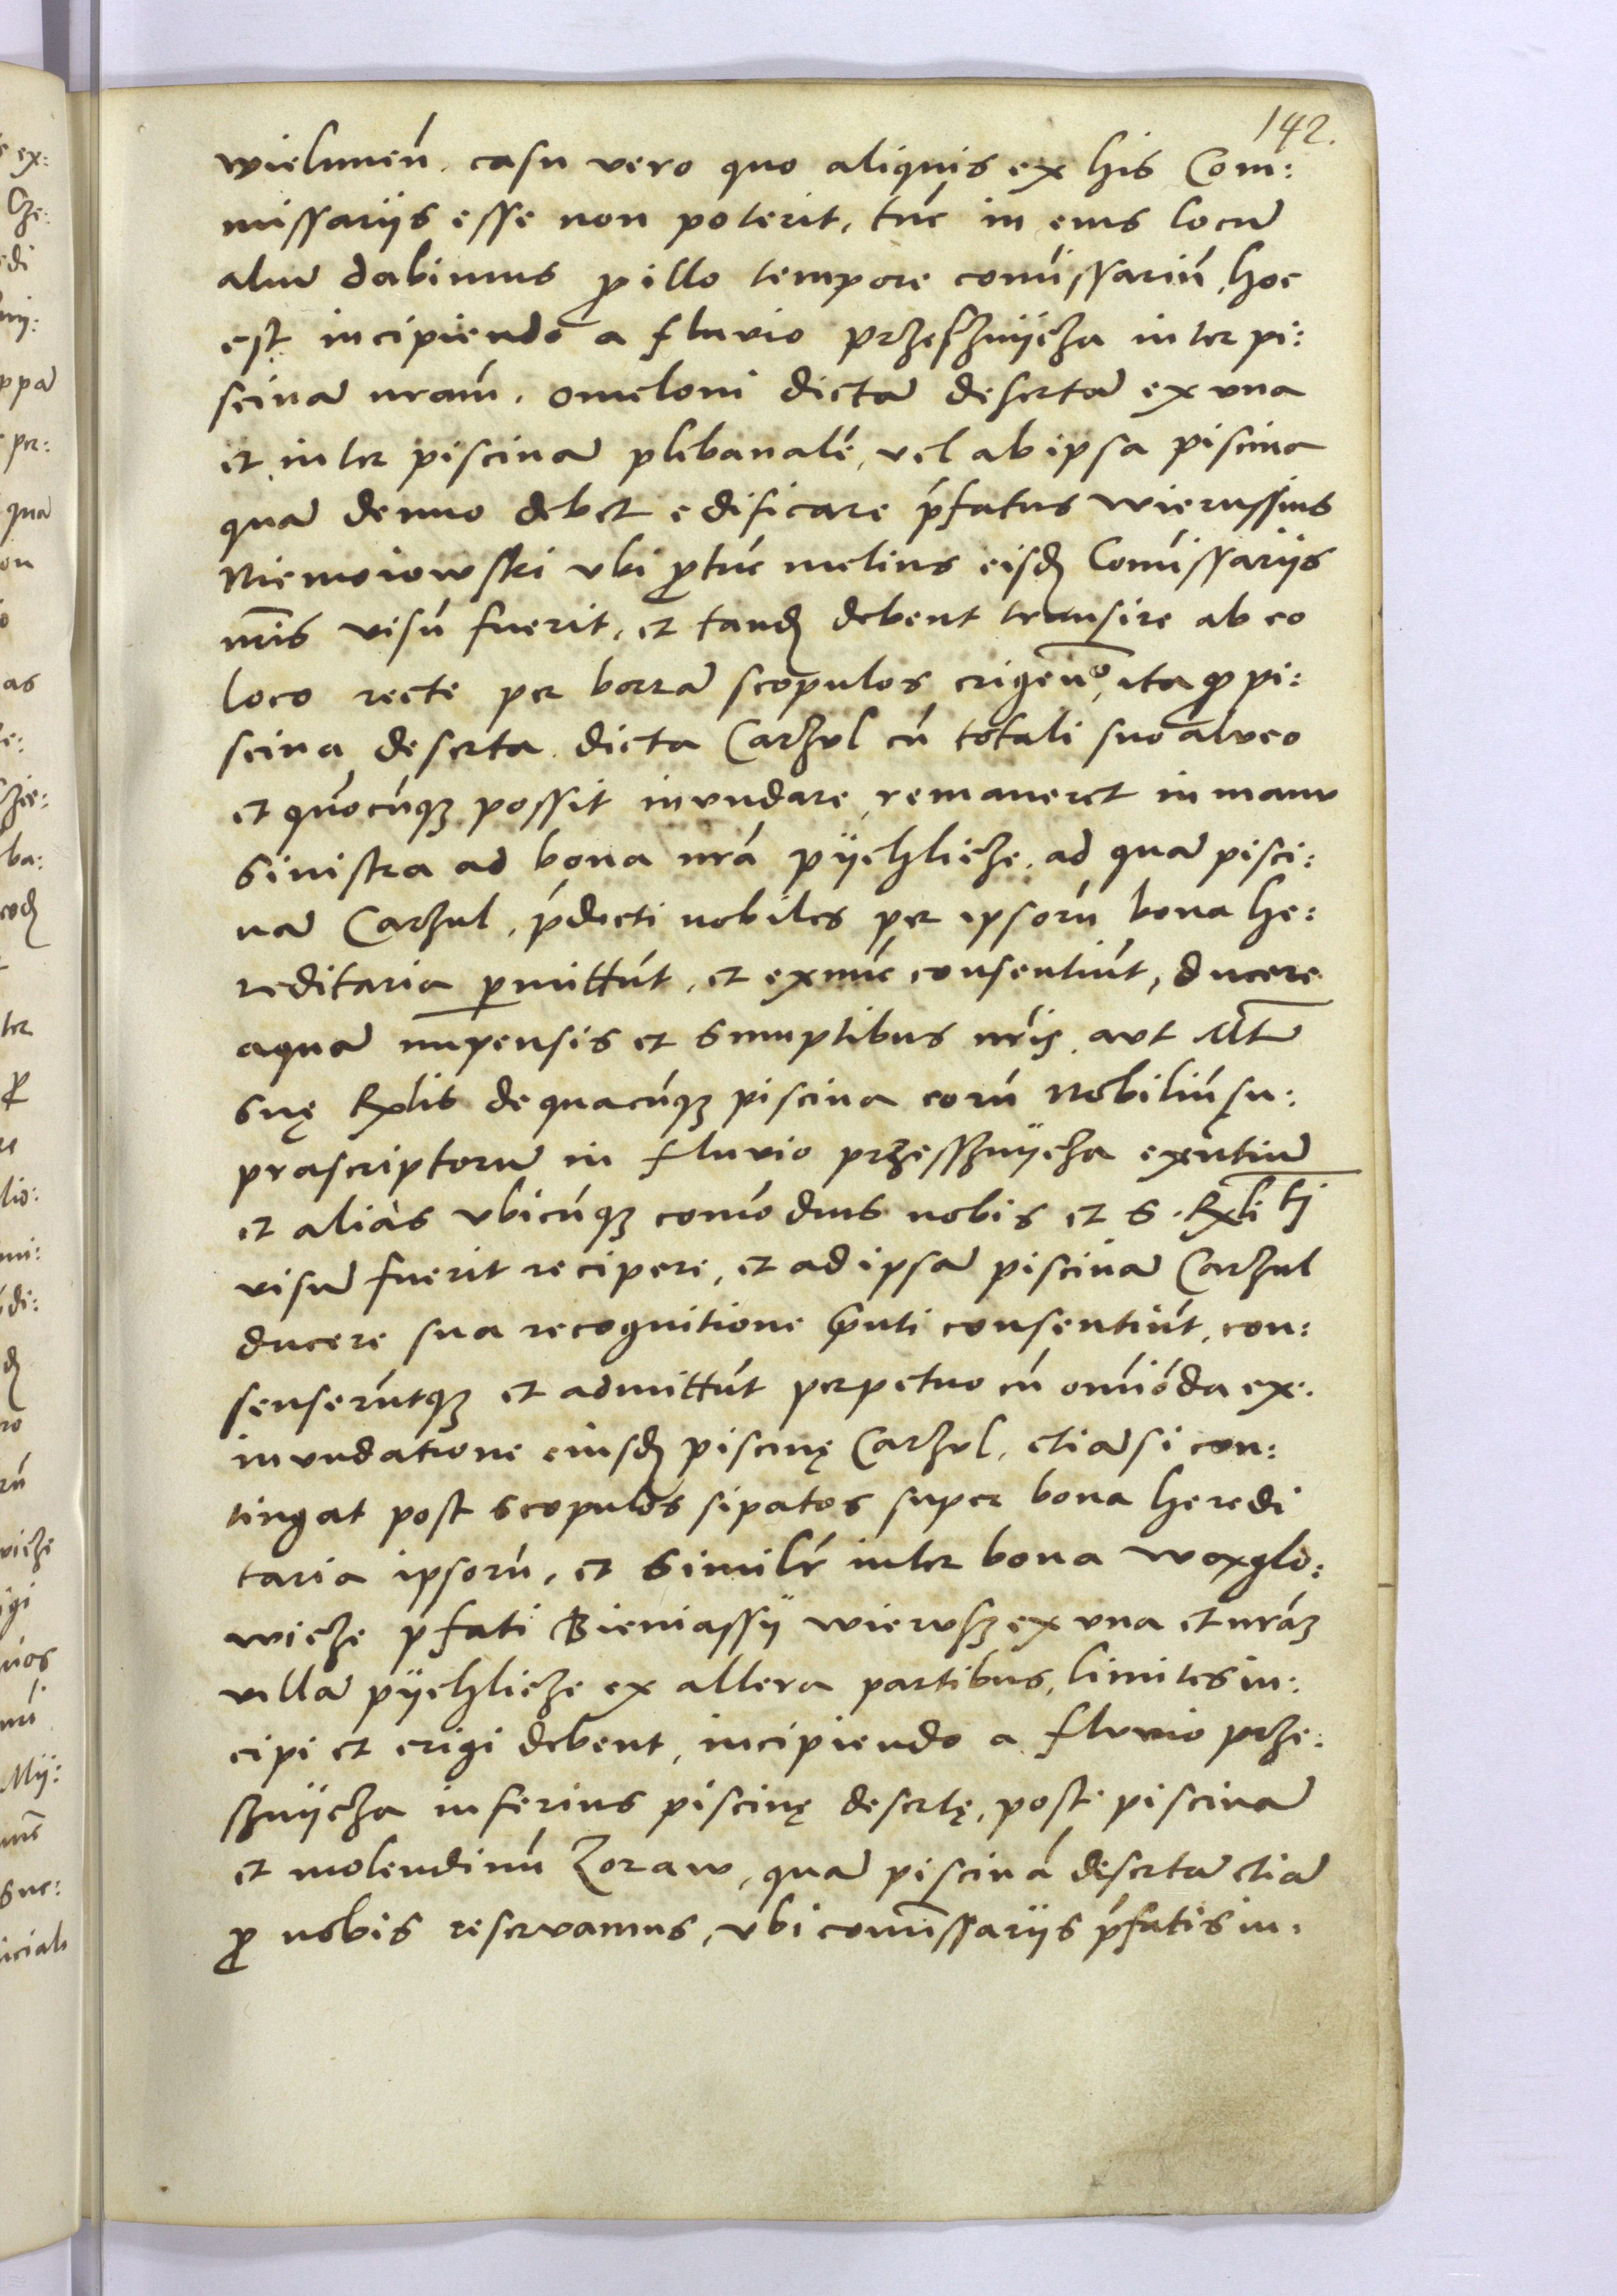 142.
wielunen̄. casu vero quo aliquis ex his Com:
missarijs esse non poterit, tūc in eius locū
aliū dabimus ꝓ illo tempore com̄issariū, hoc
est incipiendo a fluvio przeszniicza inter pi:
scinā nram̄. omeloni dictā desertā ex una
et inter piscinā plebanalē, vel ab ipsa piscina
quā denuo debet edificare p̄fatus wierussius
Niemoiowski ubi ꝓtūc melius eisdꝫ Com̄issarijs
nr̄is visū fuerit, et tandꝫ debent transire ab eo
loco recte per borrā scopulos erigen̄o, ita ꝙ pi:
scina deserta dicta Carzul cū totali suo alveo
et quocūqꝫ possit inundare, remaneret in manu
sinistra ad bona nrā pÿchlicze, ad quā pisci:
nā Carzul, p̄dicti nobiles per ipsorū bona he:
reditaria ꝑmittūt, et exnūc consentiūt, ducere
aquā impensis et sumptibus nrīs, aut M̄t̄
suę Rx̄lis de quacūqꝫ piscina eorū Nobiliū su:
prascriptorū in fluvio przesszniicza exn̄tiū
et alias ubicūqꝫ com̄odius nobis et S. Rx̄li Mti
visū fuerit recipere, et ad ipsā piscinā Carzul
ducere sua recognitione p̄nti consentiūt, con:
senserūtqꝫ et admittūt perpetuo cū om̄ioda ex:
inundatione eiusdꝫ piscinę Carzul, etiā si con:
tingat post scopulos sipatos super bona heredi
taria ipsorū, et similr̄ inter bona woxglo:
wicze p̄fati Bieniassÿ wierusz ex una et nrāꝫ
villā pÿchlicze ex altera partibus, limites in:
cipi et erigi debent, incipiendo a fluvio prze:
szniicza inferius piscinę desertę, post piscinā
et molendinū Zoraw, quā piscinā desertā etiā
ꝓ nobis reservamus, ubi com̄issarijs p̄fatis in.